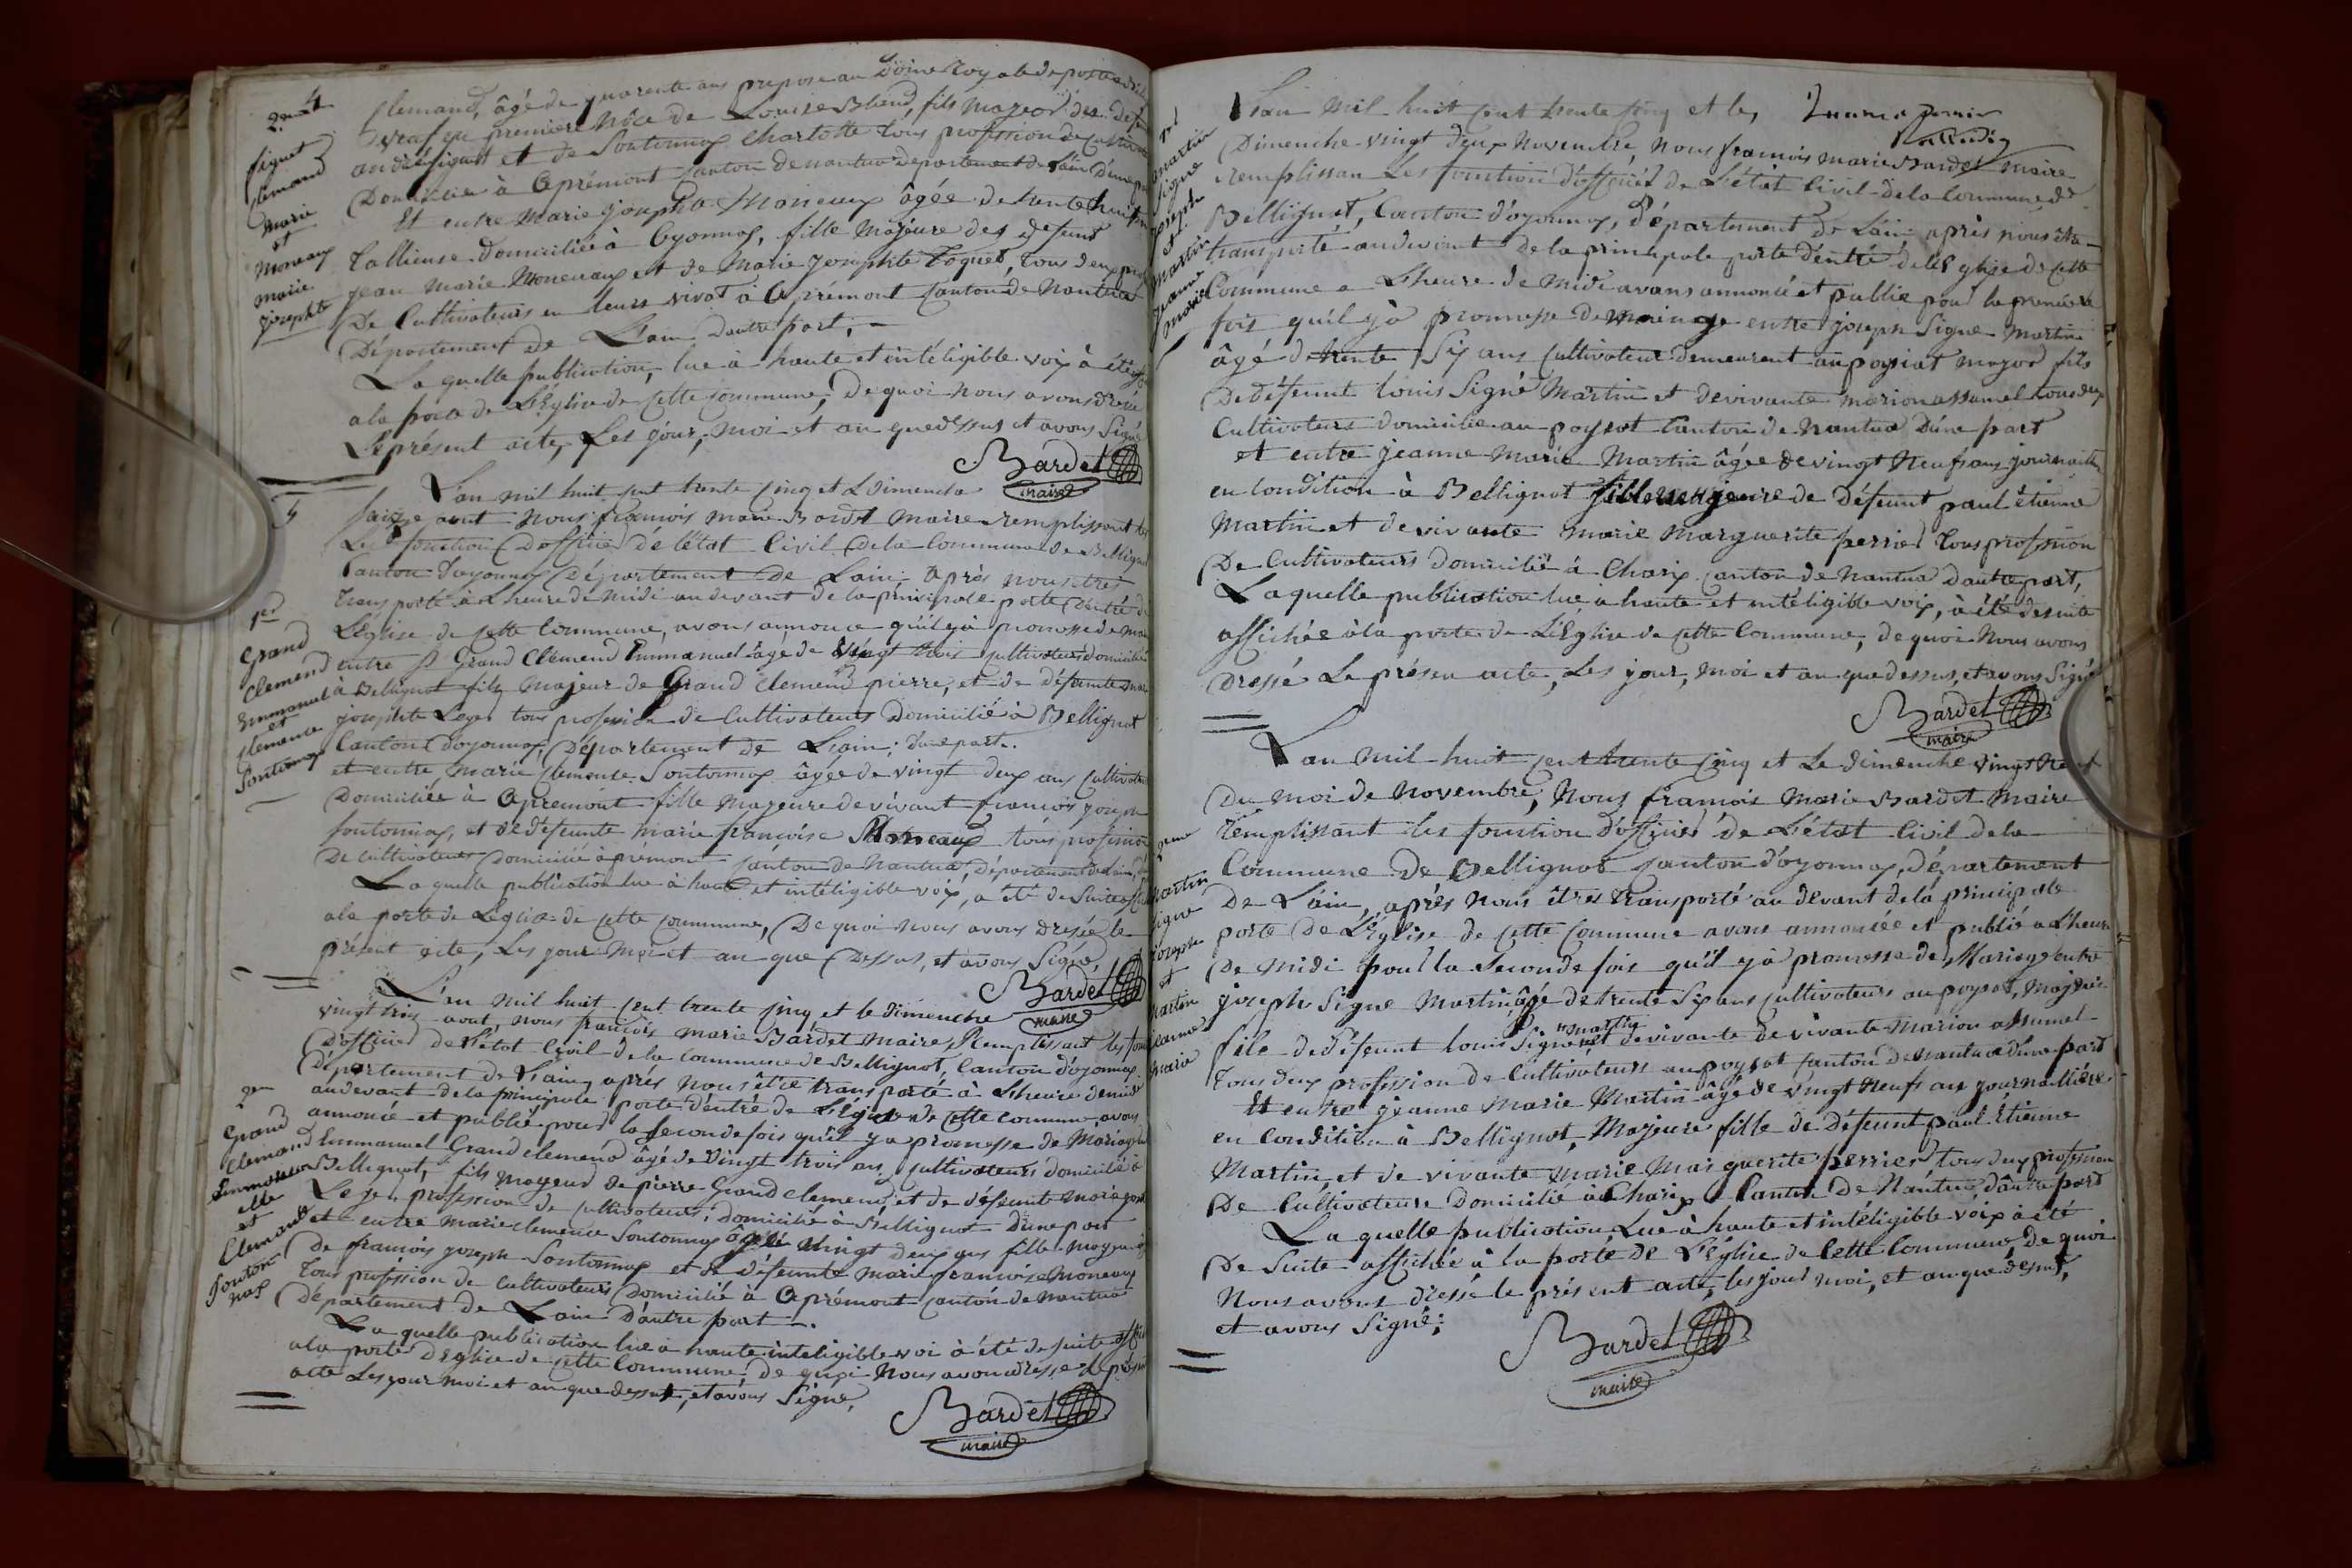 4
2eme
figuet
Clemand
Marie
et
Moneaux
marie
josephte
Clemand, âgé de quarente ans prepose au Doine Royale de poste
veuf en premiere Nôce de Louise Blend, fils mageor des defu
andré figuet et de Sontonnax Charlotte tous profession de Cultiva
Domicilie à Aprémont canton de nantua departement de Lain Dune p
Et entre Marie josephte Moneaux âgée de trente huit
Tallieuse domiciliée à Oyonnax, fille Majeure des defunt
jean Marie Moneaux et de Marie josephte Toquet, tous deux pro
De Cultivateurs en leurs vivat à Aprémont canton de Nantua
Département de Lain Dautre part, -
La quelle publication, lue à haute et intéligible voix à été
a la porte de L'Eglise de cette commune, De quoi nous avons dresé
Le présent acte, Les jour, moi et an que dessus et avons Signé
Bardet
maire
5
1er
Grand
Clemend
Emmanuel
et
Clemance
Sontonnax
L'an mil huit cent trente cinq et L dimenche
saize aout Nous françois marie Bardet maire remplissant les
Les fonction D'officier de l'état Civil de la Commune de Bellignat
Canton d'oyonnax Département de Lain, Après nous êtres
Trans porté à L'heure de Midi au devant de la principale porte d'entré de
L'eglise de cette Commune, avons annonce qu'il y a promosse de ma
entre Sr Grand Clemend Emmanuel âge de Vingt trois cultivateurs domicilié
à Bellignat fils Majeur de Grand Clemend pierre, et de défeunte marie
josephte Leger tous profession de Cultivateurs Domicilié à Bellignat
Canton d'oyonnax, Département de Lain; d'une part..
et entre Marie Clemense Sontonnax âgée de vingt deux ans Cultivatr
Domiciliée à Apremont fille Mageure de vivant françois joseph
sontonnax, et de défeunte Marie françoise Moneaux tous profession
De Cultivateurs Domicilié à prémont canton de Nantua, Département de Lain,
La quelle publication lue à haute et intéligible voix, a été de Suite affi
a la porte de L'eglise de cette Commune, De quoi nous avons dresée le
présent acte, Les jour Moi et an que Dessus, et avons Signé,
Bardet
maire
2em
Grand
Clemand
Emmanuel
et
Clemant
Sonton
nax
L'an mil huit cent trente cinq et le dimenche
vingt trois aout, nous françois marie Bardet Maires Remplissant les fon
D'officier de l'état Civil de la commune de Bellignat, Canton d'oyonnax
Département de Lain, après Nous être transporté à L'heure de midi
au devant de la principale porte d'entré de L'Eglise de cette commune avons
annoncé et publié pour la seconde fois qu'il y a promesse de Mariage
Emmanuel Grand clemend âgé de Vingt trois ans, cultivateurs domicilié à
Bellignat, fils Mageur de pierre Grand clemend, et de défeunte Marie jose
Leger profession de cultivateurs, domicilié à Bellignat d'une part
et entre Marie clemence Sontonnax âgée de vingt deux ans fille mageure
de françois joseph Sontonnax et de défeunte Marie françoise Moneaux
Tous profession de Cultivateurs Domicilié à Aprémont canton de Nantua
Département de Lain D'autre part -.
La quelle publication lue à haute inteligible voi à été de suite affi
a la porte D'Eglise de cette Commune de quoi Nous avon dresse le prése
acte Les jour moi et an que dessus, et avons Signé,
Bardet
maire
1er
martin
Signe
joseph
et
martin
jeanne
marie
L'an Mil huit cent trente cinq et les
Dimenche vingt deux Novembre, Nous françois marie Bardet maire
remplissan Les fonction d'officier de L'état Civil de la Commune de
Bellignat, Canton d'oyonnax, Département de Lain après nous êtres
transporté au devant de la principale porte d'entré de L'Eglise de cette
Commune a L'heure de Midi avans annoncé et publie pour la premiere
fois qu'il y à promesse de mariage entre joseph Signe Martin
âgé d trente Six ans Cultivateur demeurent au poysiat mageor fils
De défeunt Louis Signé Martin et de vivante Marion assumel tous deux
Cultivateurs domicilie au poysat Canton de Nantua D'une part
et entre jeanne Marie Martin âgée de vingt Neuf ans journaillé
en Condition à Bellignat fille majeure de Défeunt paul étienne
Martin et de vivante Marie Marguerite perrier tous profession
De Cultivateurs domicilié à Charix canton de Nantua Dautre part,
La quelle publication lue, à haute et intéligible voix, à été de suite
affichée à la porte de L'Eglise de cette Commune, de quoi Nous avons
Dressé Le présen acte, Les jour, Moi et an que dessus, et avons Signé
Bardet
maire
2eme
Martin
Signe
joseph
et
Martin
jeanne
Marie
L'an Mil huit cent trente cinq et Le dimenche vingt Neuf
Du moi de Novembre, Nous françois Marie Bardet Maire
remplissant les fonction d'officier de L'état Civil de la
Commune de Bellignat canton d'oyonnax, département
De Lain, après Nous êtres transporté au devant de la principale
porte de L'Eglise de cette Commune avons annoncée et publié a L'heure
De Midi pour la Seconde fois qu'il y à promesse de Mariage entre
joseph Signe Martin, âgé de trente Six ans cultivateurs au poysat, majeur
fils de défeunt Louis Signé martin et de vivante de vivante Marion assumel
Tous deux profession de Cultivateurs au poysat canton de Nantua d'une part
Et entre jeanne Marie Martin âgé de vingt Neuf ans journallière
en Condition à Bellignat, Majeure fille de défeunt paul Etienne
Martin, et de vivante Marie Marguerite perrier tous deux profession
De Cultivateurs Domicilié à Charix Canton De Nantua, d'autre part
La quelle publication Lue à haute et intéligible voix à été
De Suite affichée à la porte de L'Eglise de Cette Commune, de quoi
Nous avons dressé le présent acte, les jour moi, et an que dessus,
et avons Signé;
Bardet
maire